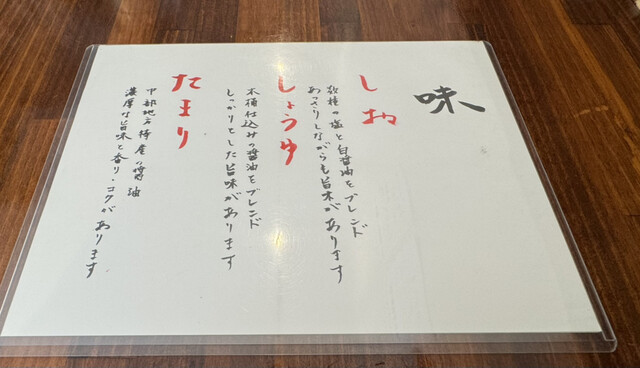 味
しお
数種の塩と白醤油をブレンド
あっさりしながらも旨味があります
しょうゆ
木桶仕込みの醤油をブレンド
しっかりとした旨味があります
たまり
中部地方特産の醤油
濃厚な旨味と香り・コクがあります